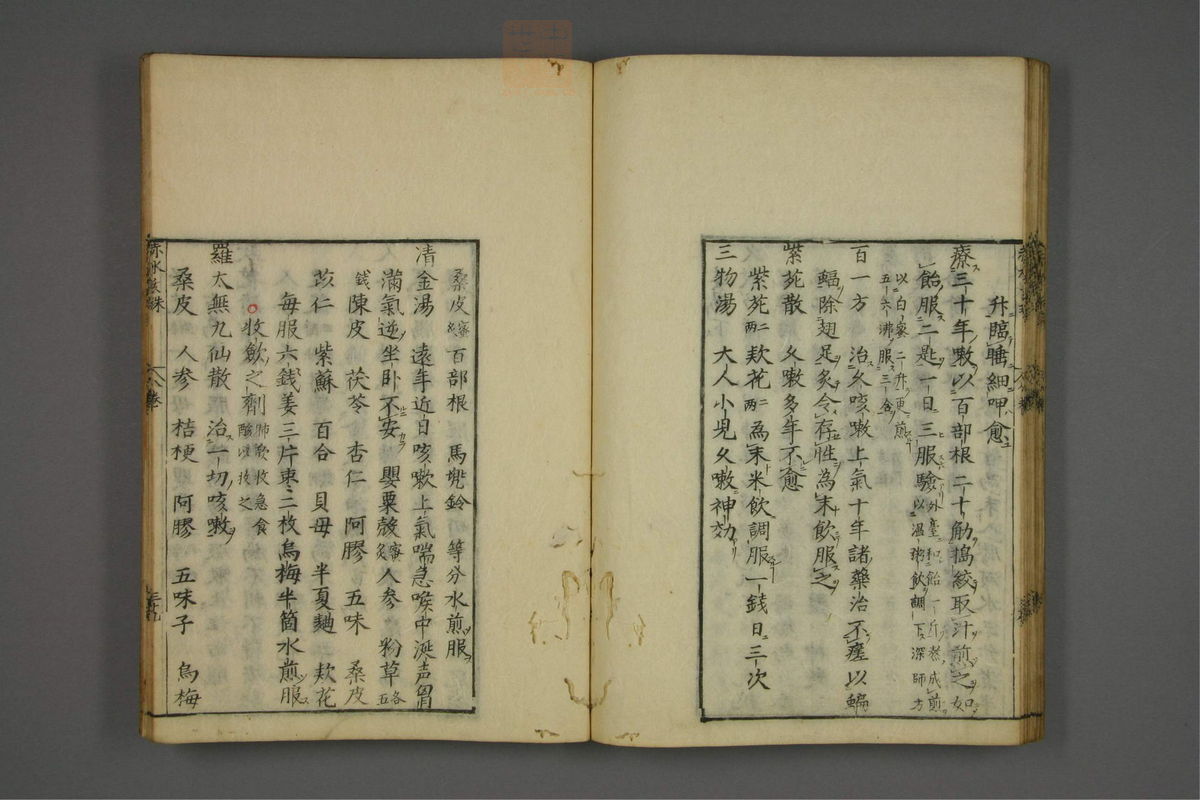 升臨睡細呷愈
療三十年嗽以百部根二十觔搗絞取汁煎之如
飴服二匙一日三服驗外臺和飴一斤煮成煎以溫粥飲調下深師方
以白蜜二升更煎五六沸服三合
百一方　治久咳嗽上氣十年諸藥治不瘥以蝙
蝠除翅足炙令存性為末飲服之
紫菀散　久嗽多年不愈
紫菀二兩　欵花二兩　為末米飲調服一錢日三次
三物湯　大人小兒久嗽神効
桑皮蜜炙　百部根　馬兜鈴　等分水煎服
清金湯　遠年近日咳嗽上氣喘急喉中涎声胷
滿氣逆坐卧不安　罌粟殼蜜炙　人参　粉草各五
錢　陳皮　茯苓　杏仁　阿膠　五味　桑皮
苡仁　紫蘇　百合　貝母　半夏麯　欵花
毎服六錢姜三片棗二枚烏梅半箇水煎服
收歛之劑肺欲收急食酸以收之
羅太無九仙散　治一切咳嗽
桑皮　人参　桔梗　阿膠　五味子　烏梅
赤水玄珠